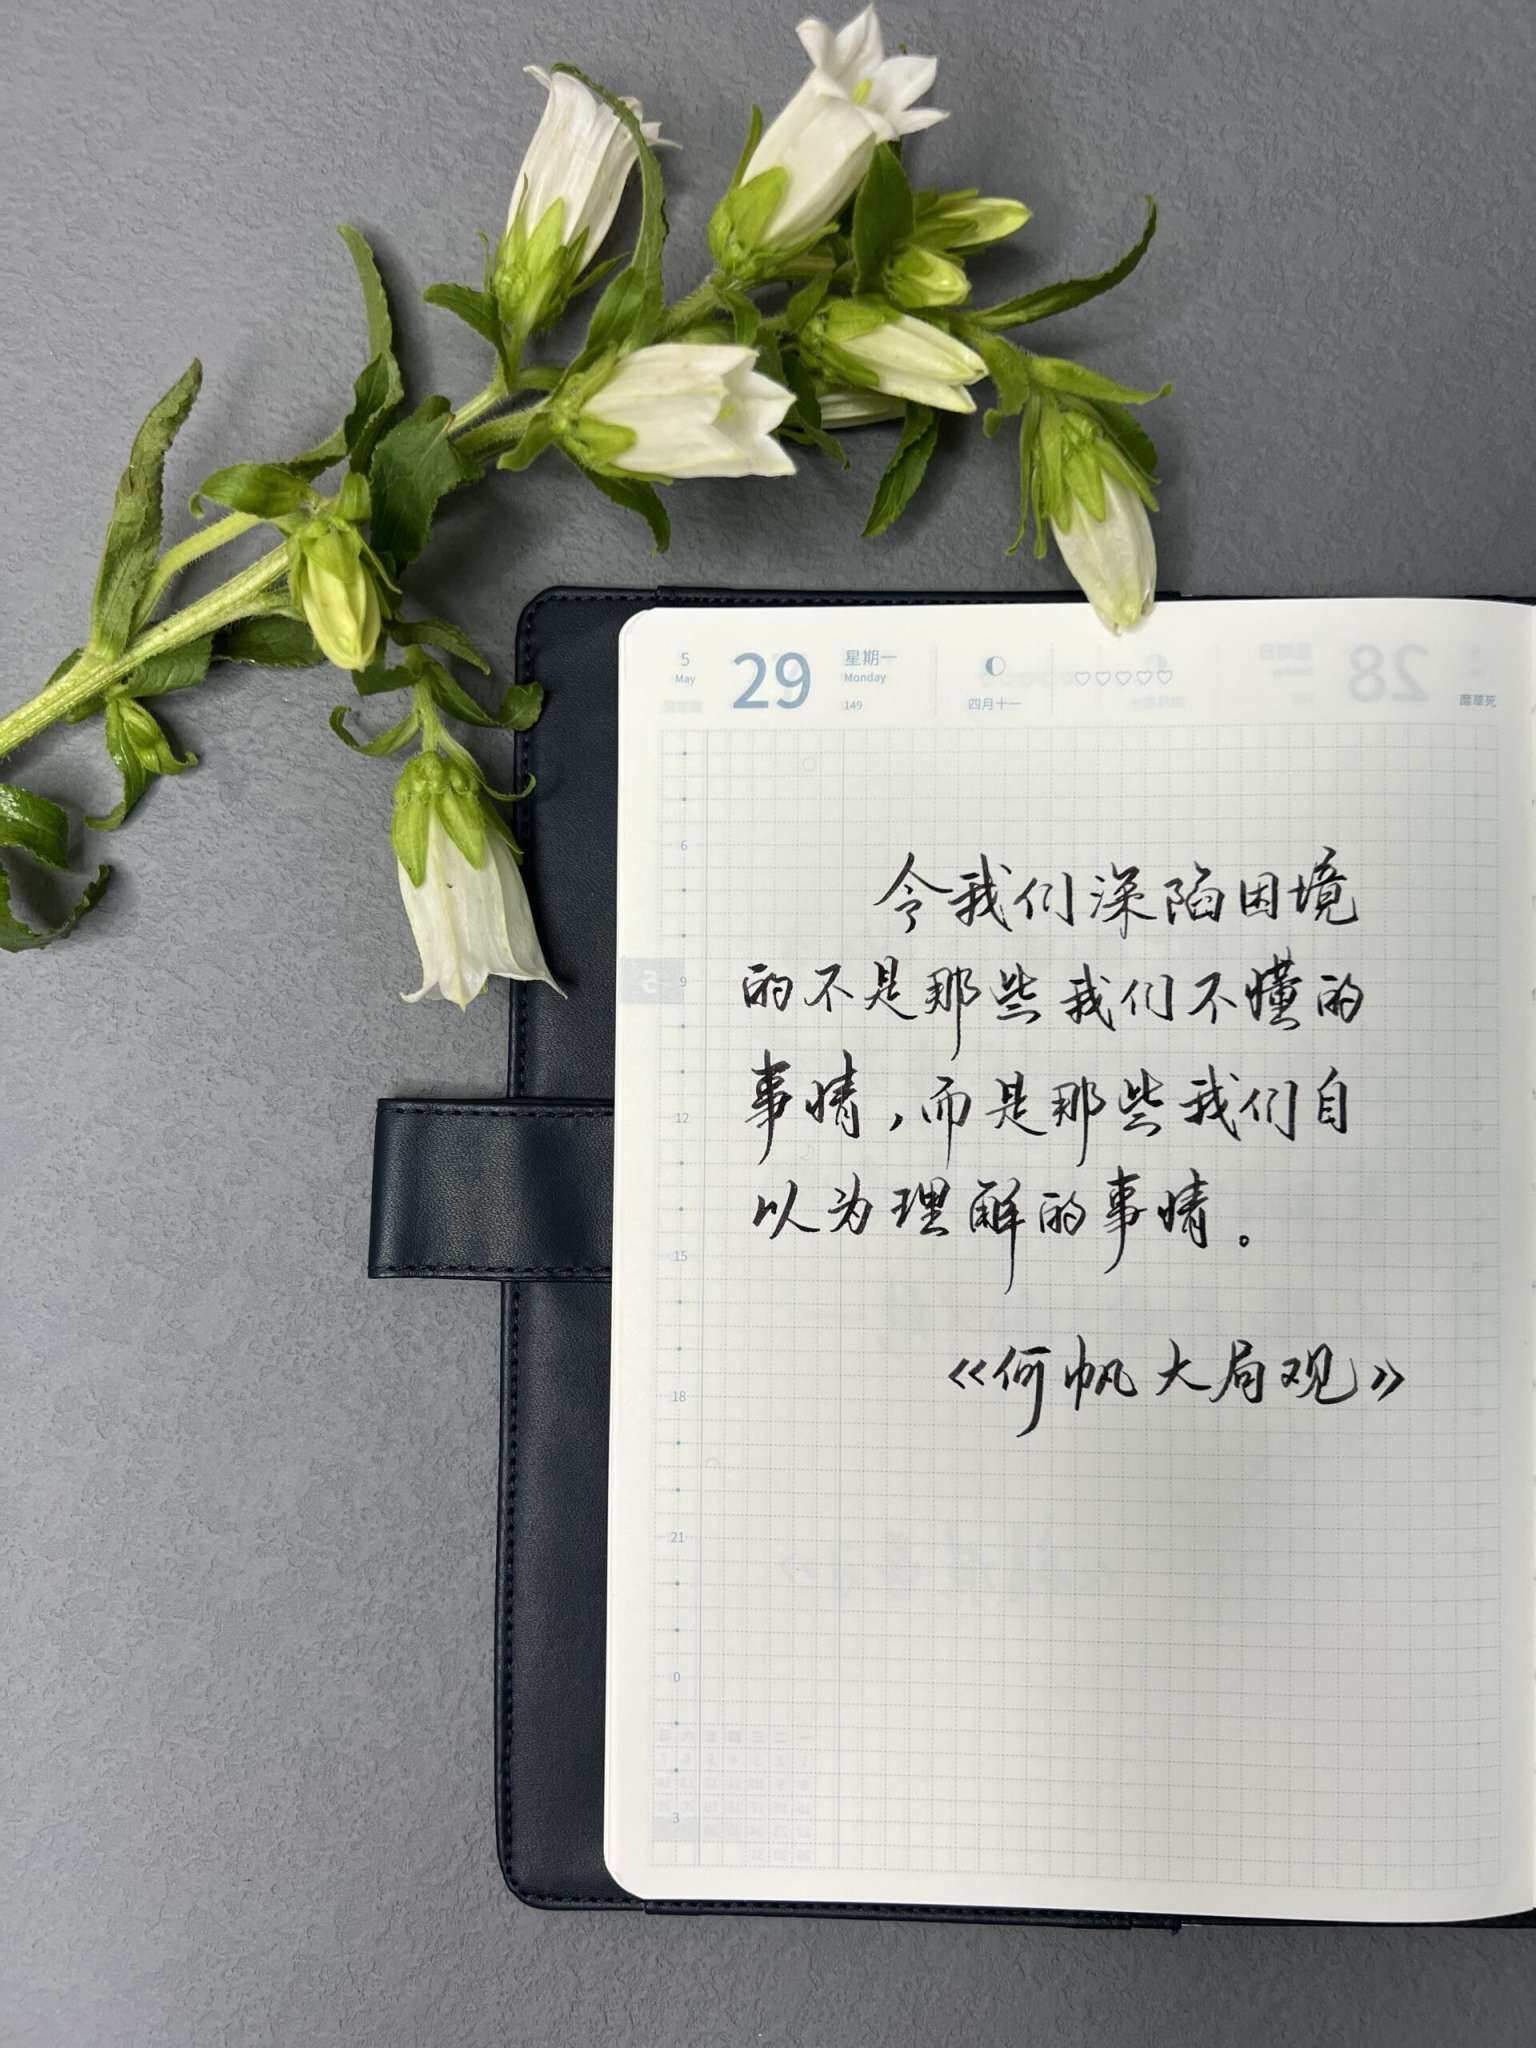 5 May 29 星期一 Monday 149 四月十一 靡草死
令我们深陷困境
的不是那些我们不懂的
事情，而是那些我们自
以为理解的事情。
《何帆大局观》
6
9
12
15
18
21
0
3